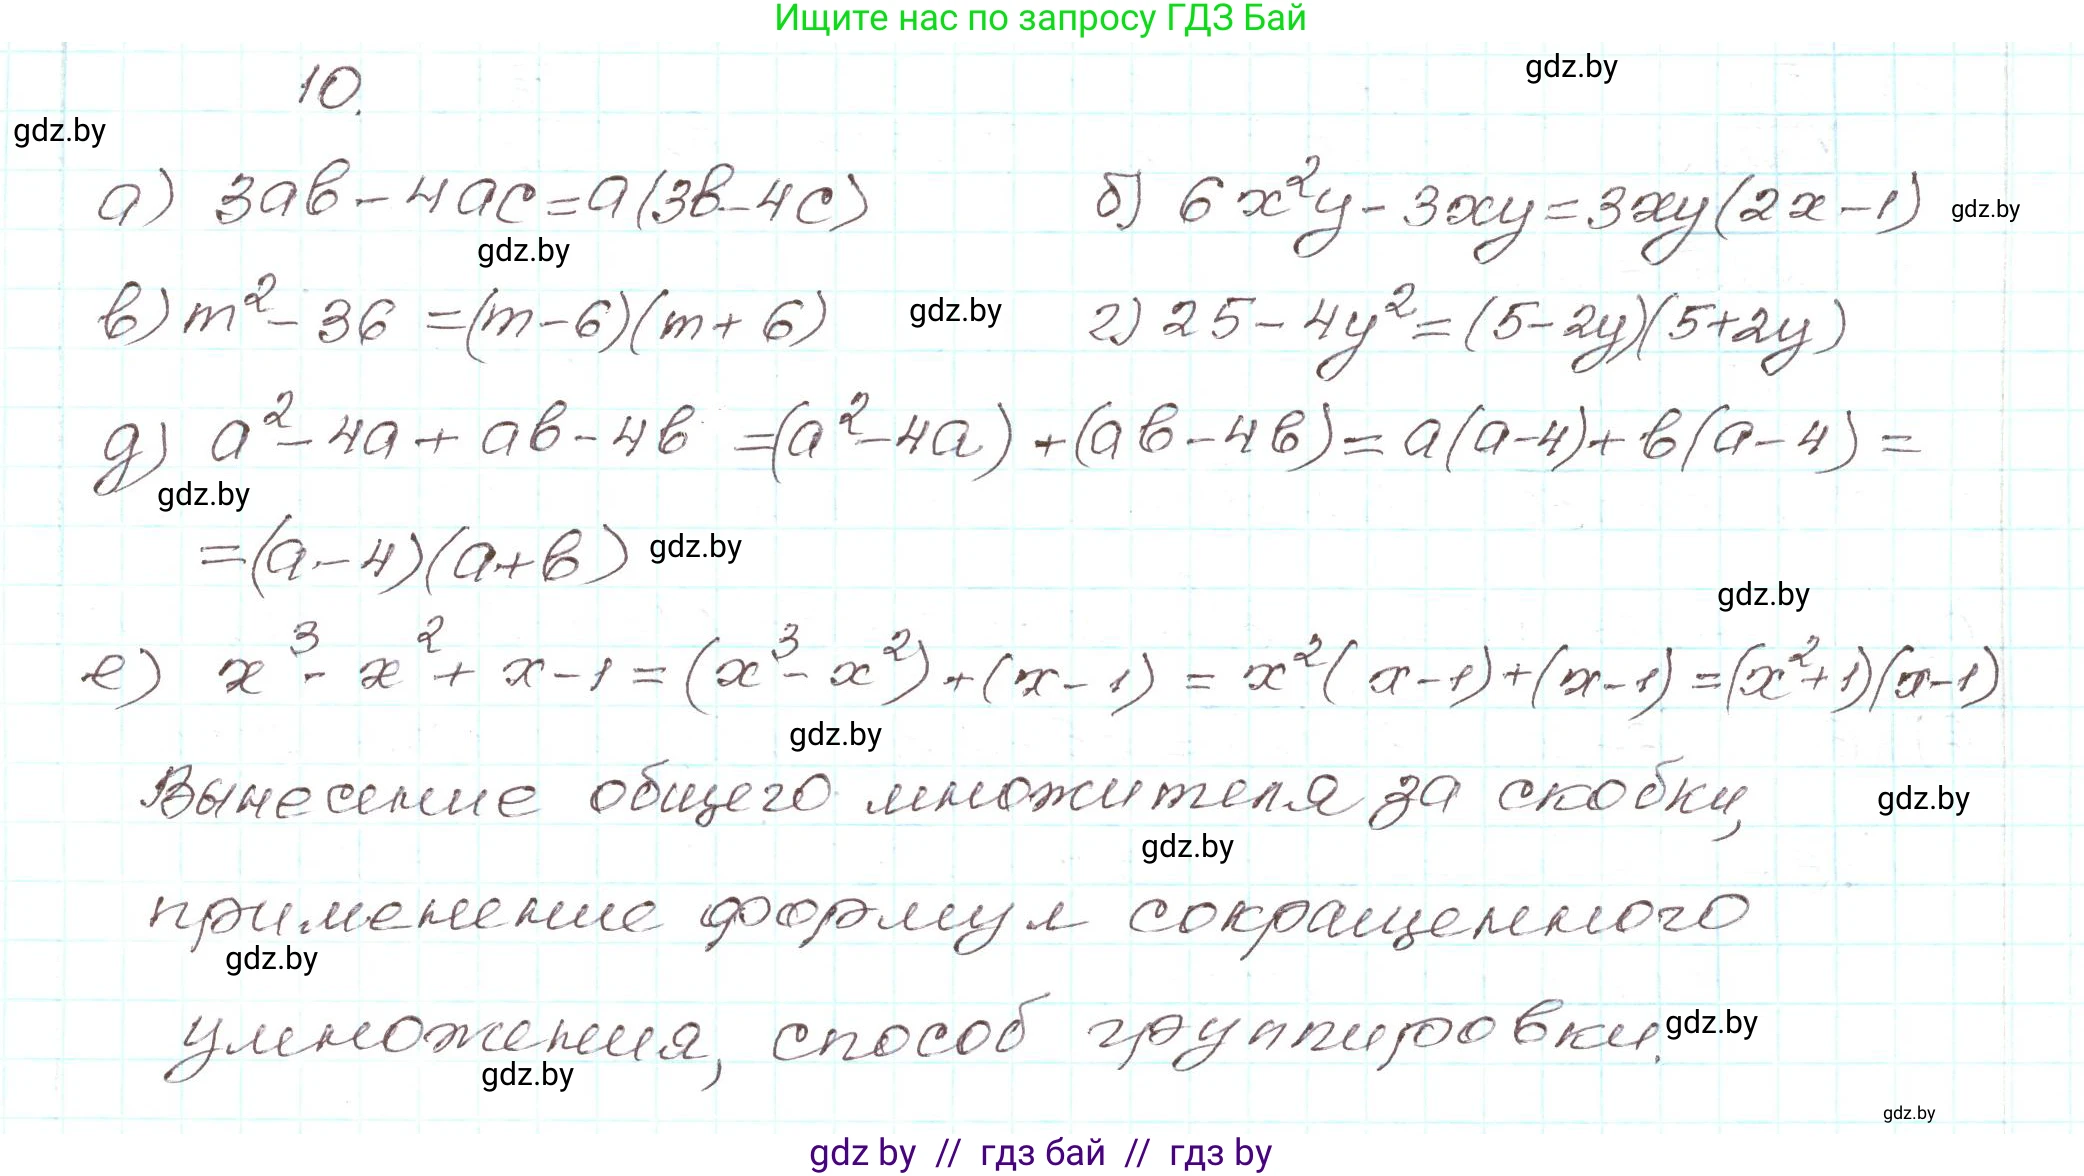 Ищите нас по запросу ГДЗ Бай
10.
gdz.by
gdz.by
а) 3ab - 4ac = a(3b - 4c)
б) 6x²y - 3xy = 3xy(2x - 1)
gdz.by
gdz.by
в) m² - 36 = (m - 6)(m + 6)
gdz.by
г) 25 - 4y² = (5 - 2y)(5 + 2y)
д) a² - 4a + ab - 4b = (a² - 4a) + (ab - 4b) = a(a - 4) + b(a - 4) =
gdz.by
= (a - 4)(a + b)
gdz.by
gdz.by
е) x³ - x² + x - 1 = (x³ - x²) + (x - 1) = x²(x - 1) + (x - 1) = (x² + 1)(x - 1)
gdz.by
Вынесение общего множителя за скобки,
gdz.by
gdz.by
применение формул сокращенного
gdz.by
умножения, способ группировки.
gdz.by
gdz.by
gdz.by
gdz by // гдз бай // гдз by